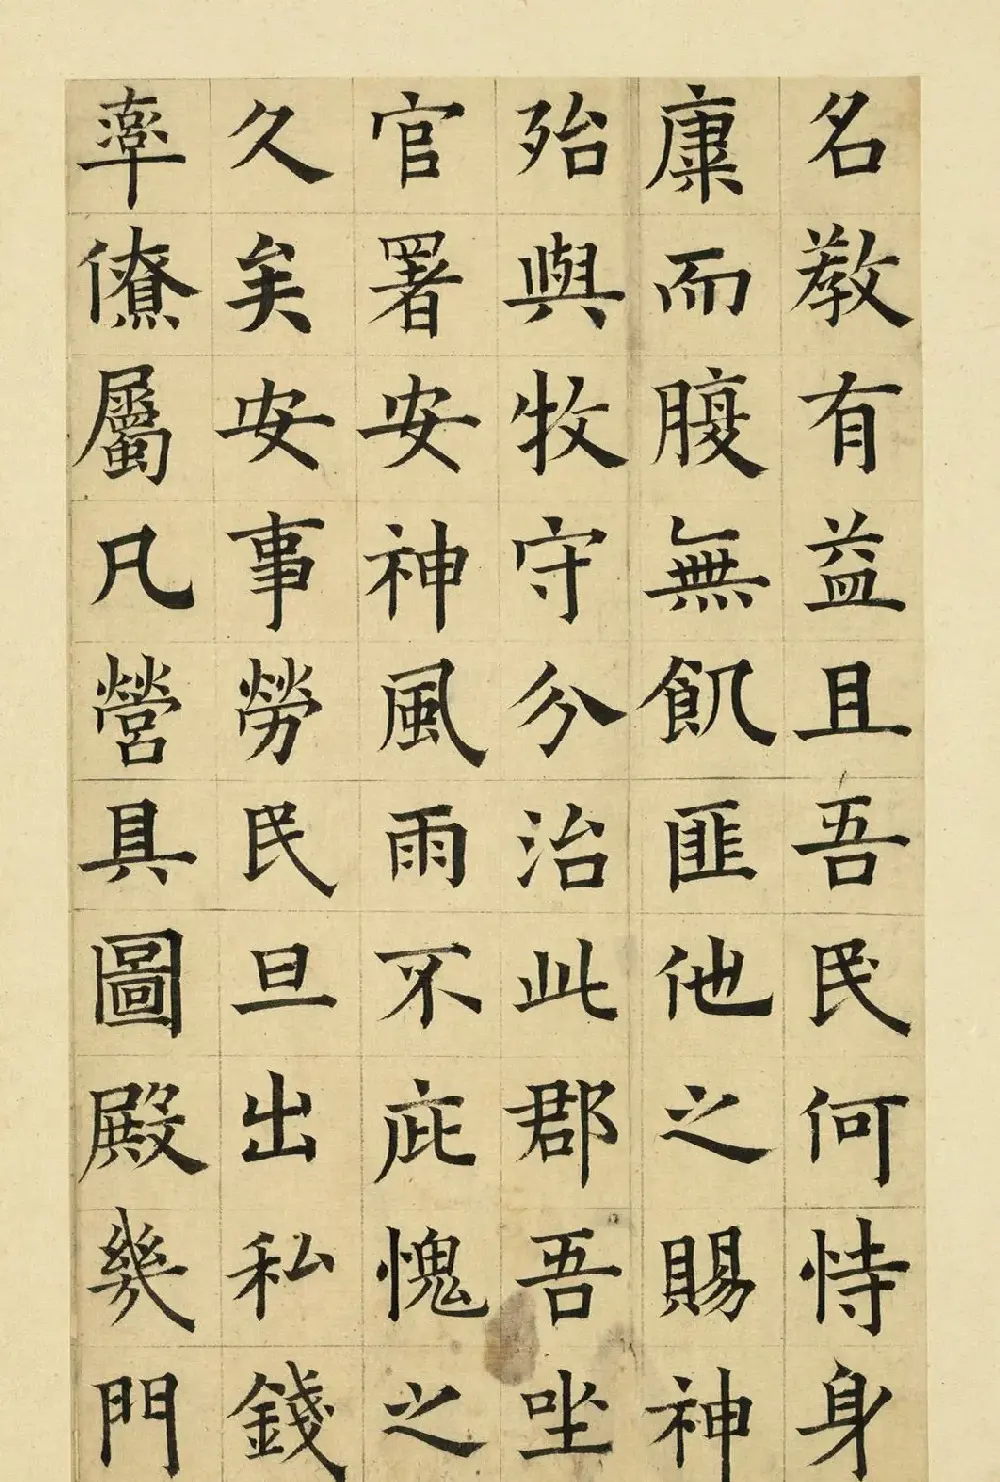 名教有益且吾民何恃身
康而腹無飢匪他之賜神
殆與牧守分治此郡吾坐
官署安神風雨不庇愧之
久矣安事勞民旦出私錢
率僚屬凡營具圖殿幾門